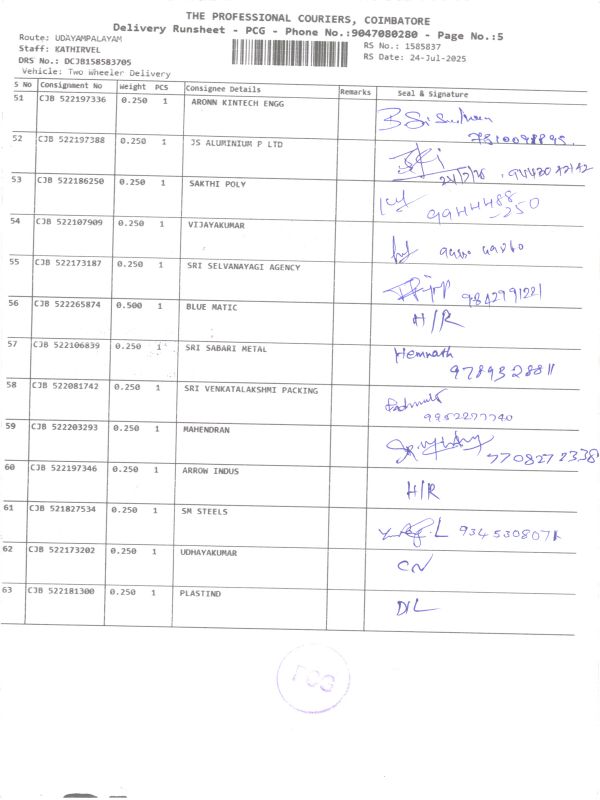 THE PROFESSIONAL COURIERS, COIMBATORE
Delivery Runsheet - PCG - Phone No.:9047080280 - Page No.:5
Route: UDAYAMPALAYAM
Staff: KATHIRVEL
DRS No.: DCJB158583705
Vehicle: Two Wheeler Delivery
RS No.: 1585837
RS Date: 24-Jul-2025
S No Consignment No Weight PCS Consignee Details Remarks Seal & Signature
51 CJB 522197336 0.250 1 ARONN KINTECH ENGG
52 CJB 522197388 0.250 1 JS ALUMINIUM P LTD
53 CJB 522186250 0.250 1 SAKTHI POLY 99444488
250
54 CJB 522107909 0.250 1 VIJAYAKUMAR
55 CJB 522173187 0.250 1 SRI SELVANAYAGI AGENCY 9842791221
56 CJB 522265874 0.500 1 BLUE MATIC H/R
57 CJB 522106839 0.250 1 SRI SABARI METAL Hemnath
9789328811
58 CJB 522081742 0.250 1 SRI VENKATALAKSHMI PACKING
9952277740
59 CJB 522203293 0.250 1 MAHENDRAN 7708272338
60 CJB 522197346 0.250 1 ARROW INDUS H/R
61 CJB 521827534 0.250 1 SM STEELS 9345308071
62 CJB 522173202 0.250 1 UDHAYAKUMAR CN
63 CJB 522181300 0.250 1 PLASTIND D/L
PCG